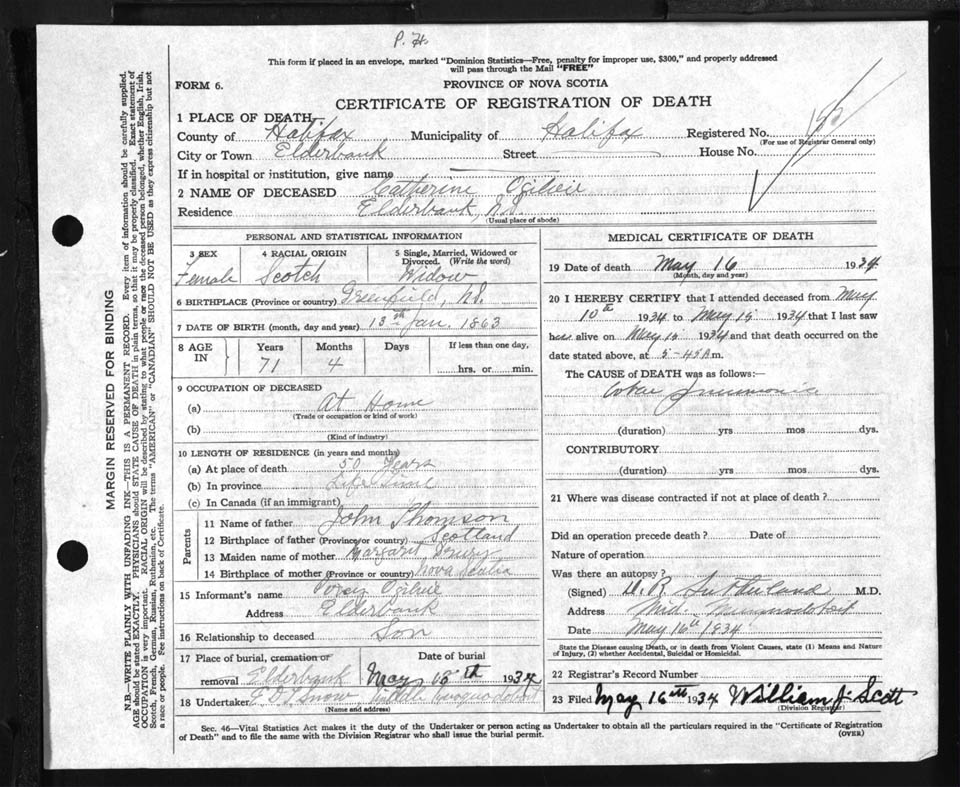 P. H.
This form if placed in an envelope, marked "Dominion Statistics—Free, penalty for improper use, $300," and properly addressed
will pass through the Mail "FREE"
FORM 6.
PROVINCE OF NOVA SCOTIA
CERTIFICATE OF REGISTRATION OF DEATH
1 PLACE OF DEATH
County of Halifax Municipality of Halifax Registered No.
(For use of Registrar General only)
City or Town Elderbank Street House No.
If in hospital or institution, give name
2 NAME OF DECEASED Catherine Ogilvie
Residence Elderbank, N.S.
(Usual place of abode)
PERSONAL AND STATISTICAL INFORMATION
3 SEX 4 RACIAL ORIGIN 5 Single, Married, Widowed or
Divorced. (Write the word)
Female Scotch Widow
6 BIRTHPLACE (Province or country) Greenfield, N.S.
7 DATE OF BIRTH (month, day and year) 13th Jan. 1863
8 AGE IN Years Months Days If less than one day,
71 4 hrs. or min.
9 OCCUPATION OF DECEASED
(a) At Home
(Trade or occupation or kind of work)
(b)
(Kind of industry)
10 LENGTH OF RESIDENCE (in years and months)
(a) At place of death 50 Years
(b) In province Life Time
(c) In Canada (if an immigrant)
Parents
11 Name of father John Thomson
12 Birthplace of father (Province or country) Scotland
13 Maiden name of mother Margaret
14 Birthplace of mother (Province or country) Nova Scotia
15 Informant's name Percy Ogilvie
Address Elderbank
16 Relationship to deceased Son
17 Place of burial, cremation or Date of burial
removal Elderbank May 18th 1934
18 Undertaker Snow, Middle Musquodoboit
(Name and address)
MEDICAL CERTIFICATE OF DEATH
19 Date of death May 16 1934
(Month, day and year)
20 I HEREBY CERTIFY that I attended deceased from May
10th 1934 to May 15 1934 that I last saw
her alive on May 15 1934 and that death occurred on the
date stated above, at 5-45 A m.
The CAUSE of DEATH was as follows:—
Lobar Pneumonia
(duration) yrs mos dys.
CONTRIBUTORY
(duration) yrs mos dys.
21 Where was disease contracted if not at place of death?
Did an operation precede death? Date of
Nature of operation
Was there an autopsy?
(Signed) Sutherland M.D.
Address Mid. Musquodoboit
Date May 16th 1934
State the Disease causing Death, or in death from Violent Causes, state (1) Means and Nature
of Injury, (2) whether Accidental, Suicidal or Homicidal.
22 Registrar's Record Number
23 Filed May 16th 1934 William J. Scott
(Division Registrar)
Sec. 46—Vital Statistics Act makes it the duty of the Undertaker or person acting as Undertaker to obtain all the particulars required in the "Certificate of Registration
of Death" and to file the same with the Division Registrar who shall issue the burial permit. (OVER)
MARGIN RESERVED FOR BINDING
N.B.—WRITE PLAINLY WITH UNFADING INK—THIS IS A PERMANENT RECORD. Every item of information should be carefully supplied.
AGE should be stated EXACTLY. PHYSICIANS should STATE CAUSE OF DEATH in plain terms, so that it may be properly classified. Exact statement of
OCCUPATION is very important. RACIAL ORIGIN will be described by stating to what people or race the deceased person belonged, whether English, Irish,
Scotch, French, German, Russian, Ruthenian, etc. The terms "AMERICAN" or "CANADIAN" SHOULD NOT BE USED as they express citizenship but not
a race or people. See instructions on back of Certificate.